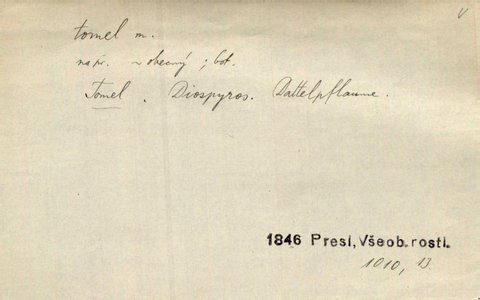 tomel m.
např. ~ obecný ; bot.
Tomel . Diospyros. Dattelpflaume.
1846 Presl, Všeob. rostl.
1010, B